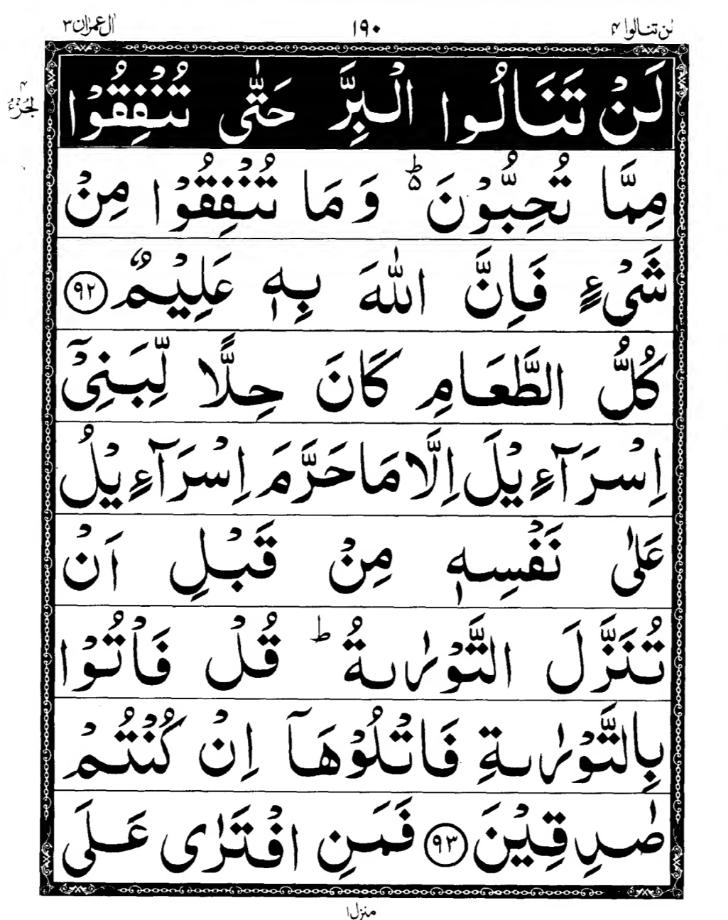 لن تنالوا ٤ ١٩٠ اٰل عمرٰن ٣
الجزء ٤
لَنْ تَنَالُوا الْبِرَّ حَتّٰى تُنْفِقُوْا
مِمَّا تُحِبُّوْنَ ؕ۬ وَ مَا تُنْفِقُوْا مِنْ
شَیْءٍ فَاِنَّ اللّٰهَ بِهٖ عَلِیْمٌ ﴿۹۲﴾
كُلُّ الطَّعَامِ كَانَ حِلًّا لِّبَنِیْۤ
اِسْرَآءِیْلَ اِلَّا مَا حَرَّمَ اِسْرَآءِیْلُ
عَلٰى نَفْسِهٖ مِنْ قَبْلِ اَنْ
تُنَزَّلَ التَّوْرٰىةُ ؕ قُلْ فَاْتُوْا
بِالتَّوْرٰىةِ فَاتْلُوْهَاۤ اِنْ كُنْتُمْ
صٰدِقِیْنَ ﴿۹۳﴾ فَمَنِ افْتَرٰى عَلَى
منزل ١